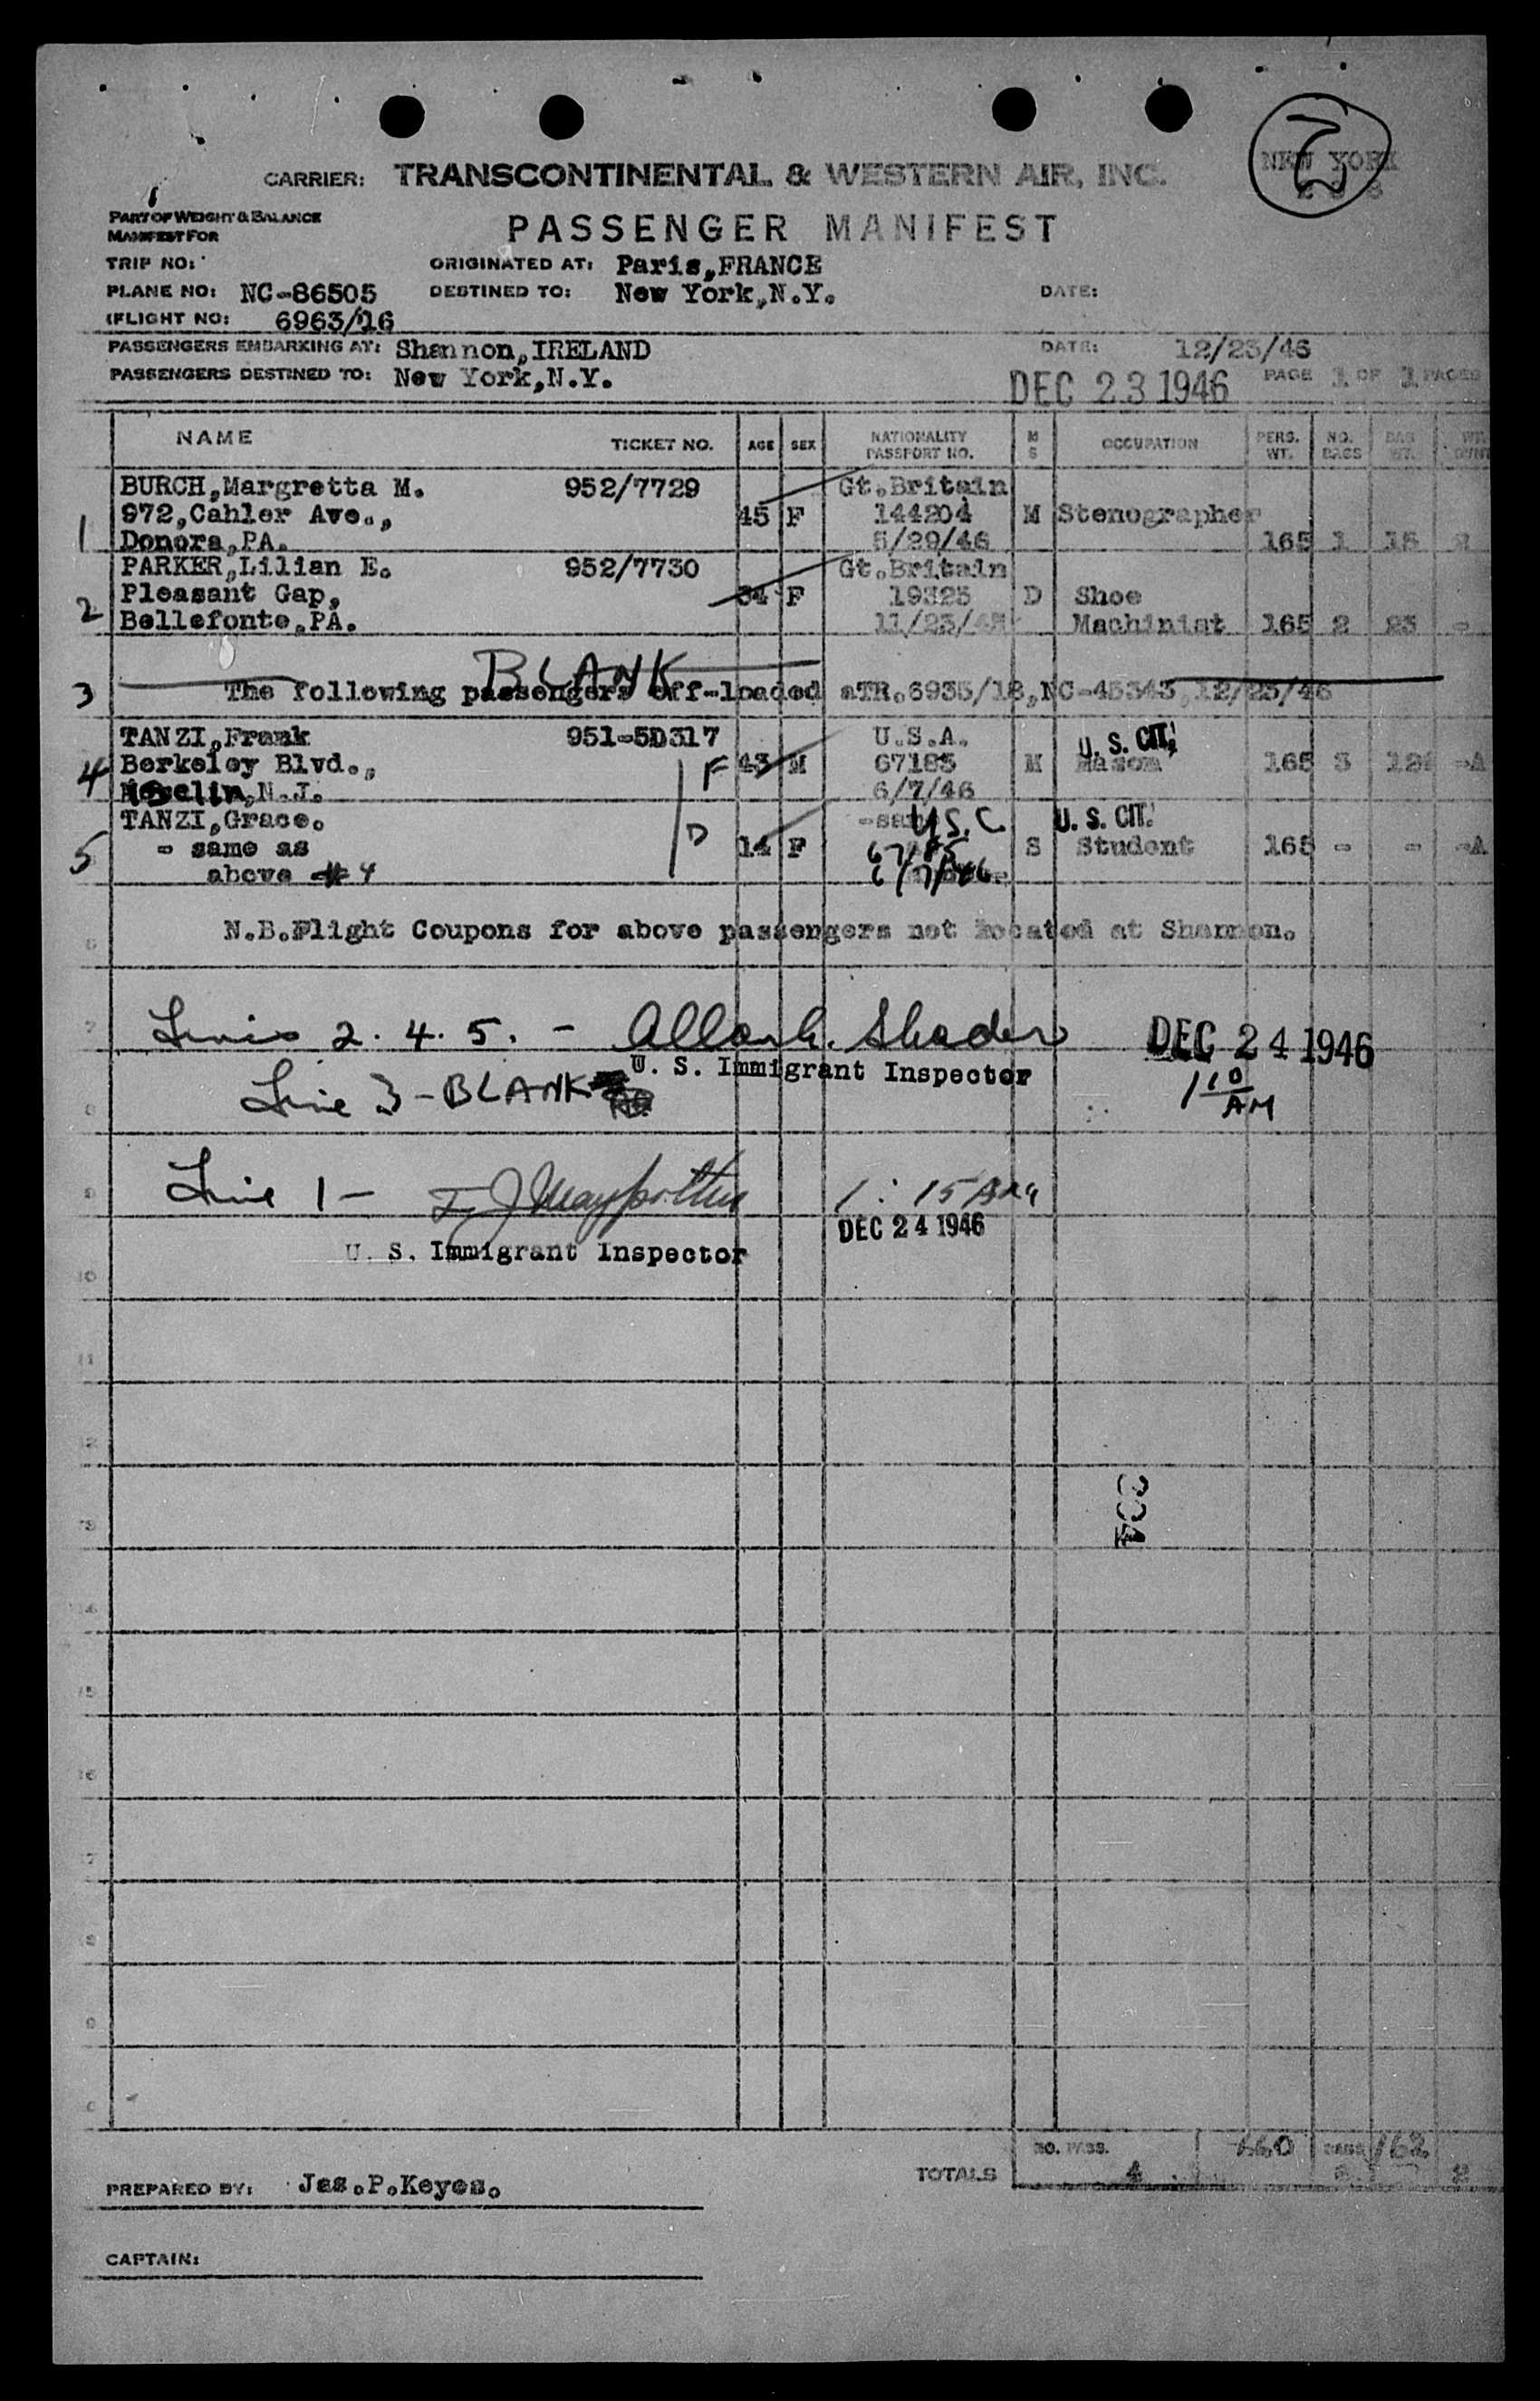 CARRIER: TRANSCONTINENTAL & WESTERN AIR, INC.
NEW YORK
7
PART OF WEIGHT & BALANCE
MANIFEST FOR
PASSENGER MANIFEST
TRIP NO:
ORIGINATED AT: Paris,FRANCE
PLANE NO: NC-86505 DESTINED TO: New York,N.Y. DATE:
FLIGHT NO: 6963/16
PASSENGERS EMBARKING AT: Shannon,IRELAND DATE: 12/23/46
PASSENGERS DESTINED TO: New York,N.Y. DEC 23 1946 PAGE 1 OF 1 PAGES
NAME TICKET NO. AGE SEX NATIONALITY PASSPORT NO. M S OCCUPATION PERS. WT. NO. BAGS BAG WT.
BURCH,Margretta M. 952/7729 Gt.Britain
972,Cahler Ave., 45 F 144204 M Stenographer
1 Donora,PA. 5/29/46 165 1 15 2
PARKER,Lilian E. 952/7730 Gt.Britain
Pleasant Gap, 34 F 19325 D Shoe
2 Bellefonte,PA. Machinist 165 2 23 -
BLANK
3 The following passengers off-loaded aTR.6935/18,NC-45343,12/23/46
TANZI,Frank 951-5D317 U.S.A. U. S. CIT.
4 Berkeley Blvd., F 43 M 67185 M Mason 165 3 -A
Iselin,N.J. 6/7/46
TANZI,Grace. -same U.S.C. U. S. CIT.
5 - same as D 14 F 67185 S Student 165 - - -A
above #4 6/7/46
N.B.Flight Coupons for above passengers not located at Shannon.
Lines 2. 4. 5. - Allan G. Shader DEC 24 1946
U. S. Immigrant Inspector
Line 3 - BLANK 1 10 AM
Line 1 - 1:15
DEC 24 1946
U. S. Immigrant Inspector
304
NO. PASS. 660 BAGS 162
TOTALS 4 2
PREPARED BY: Jas.P.Keyes.
CAPTAIN: